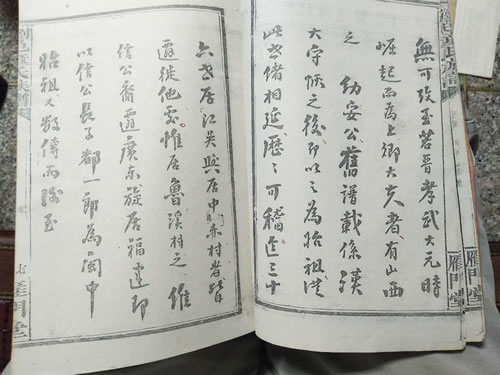 氏族譜
雁門堂
雁門堂
無可攷至若晉孝武大元時
崛起而為上卿大夫者有山西
之 幼安公舊譜載係漢
大守之後即以之為始祖從
此世緒相延歷〻可稽迄三十
六世居江吳與居中赤村者皆
遷徙他處惟居魯溪村之 維
信公裔遷廣东旋居福建即
以信公長子都一郎為閩中
始祖又数傳而後至
七